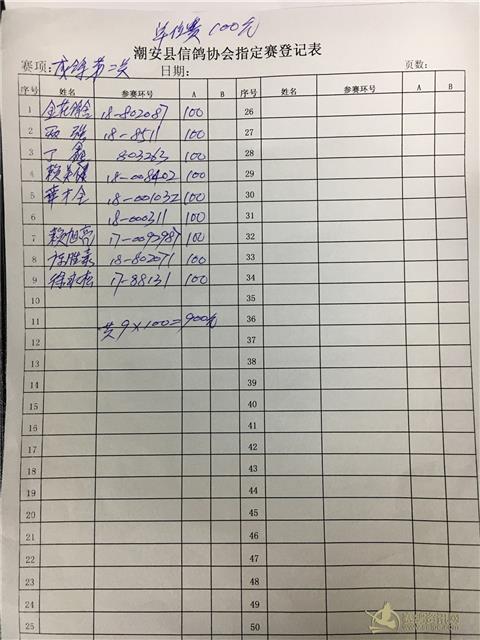 单位费 100元
潮安县信鸽协会指定赛登记表
赛项: 成鸽第二关 日期: 页数:
序号 姓名 参赛环号 A B 序号 姓名 参赛环号 A B
1 18-802087 100 26
2 18-8511 100 27
3 丁 803263 100 28
4 赖 18-008402 100 29
5 华才全 18-001032 100 30
6 18-000311 100 31
7 赖旭亮 17-0093987 100 32
8 18-802071 100 33
9 徐 松 17-88131 100 34
10 35
11 共9×100=900元 36
12 37
13 38
14 39
15 40
16 41
17 42
18 43
19 44
20 45
21 46
22 47
23 48
24 49
25 50